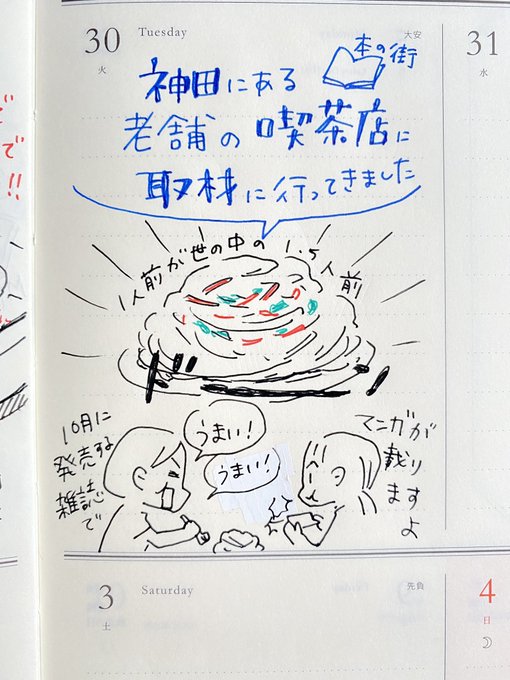 30
Tuesday
大安
火
31
水
本の街
神田にある
老舗の喫茶店に
取材に行ってきました
1人前が世の中の1.5人前
ド ン !
うまい!
うまい!
10月に
発売する
雑誌で
マンガが
載り
ますよ
で
!!
3
Saturday
先負
土
4
日